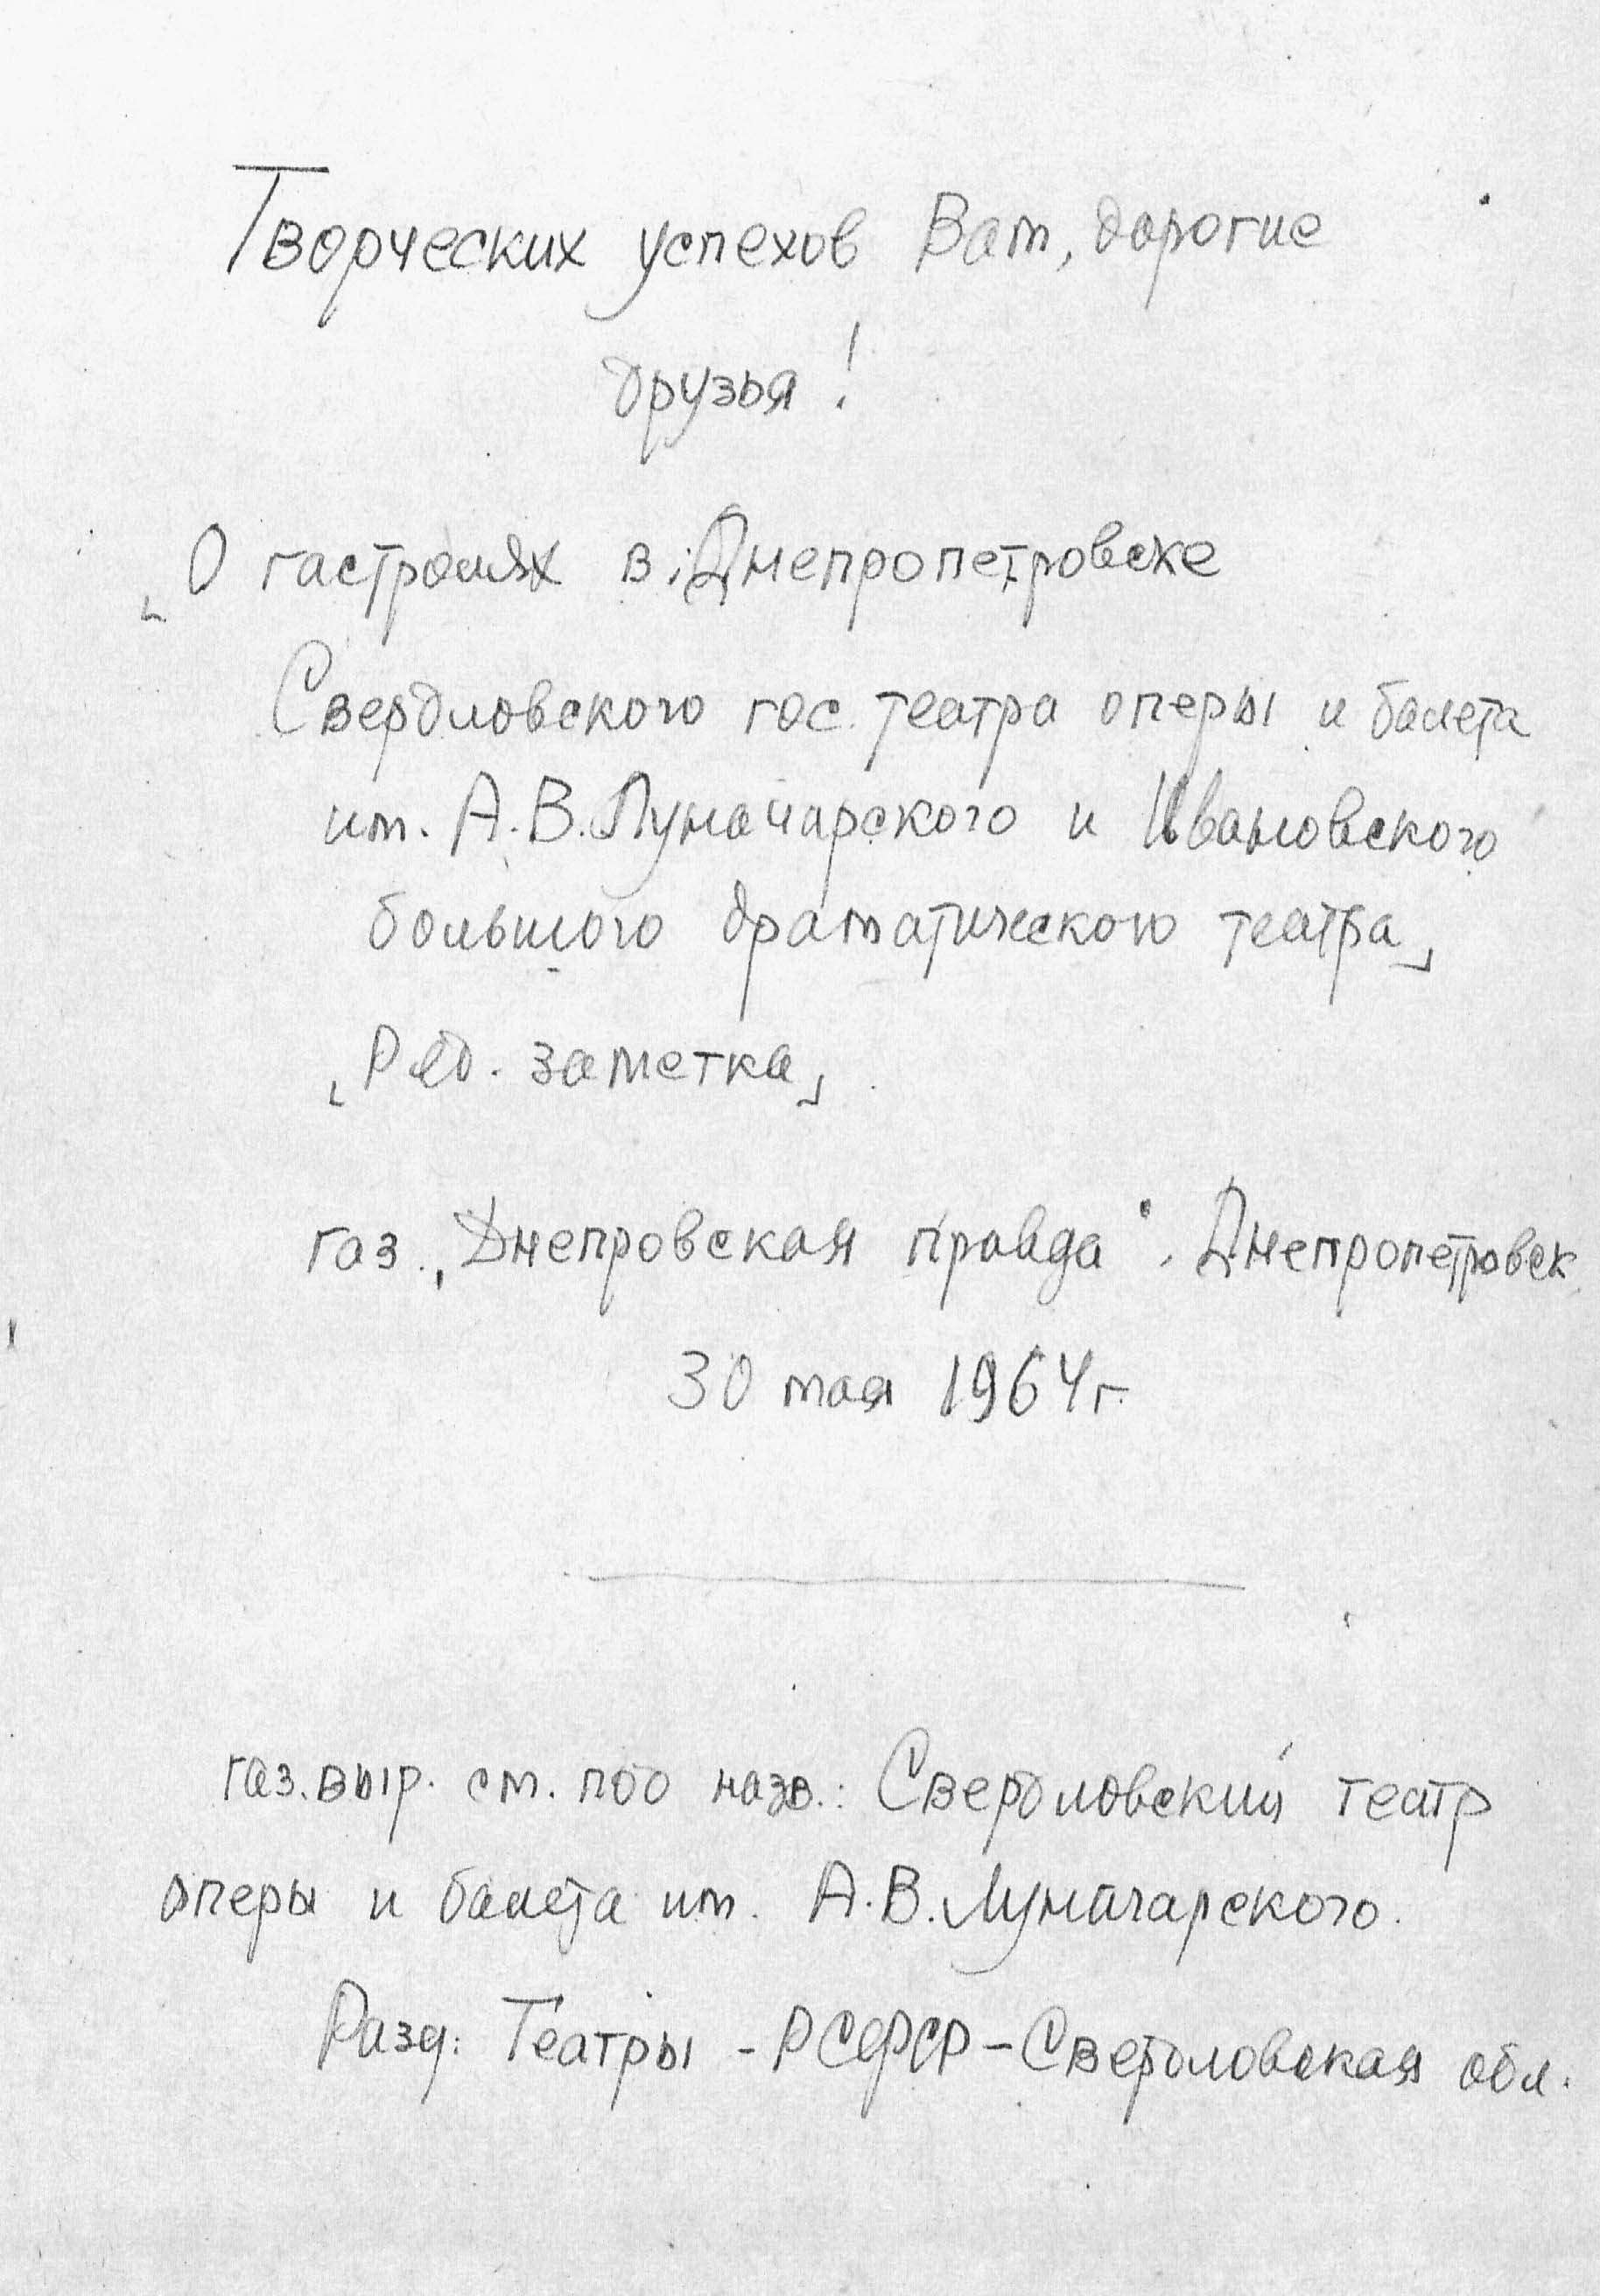 Творческих успехов Вам, дорогие
друзья!
„О гастролях в Днепропетровске
Свердловского гос. театра оперы и балета
им. А.В. Луначарского и Ивановского
большого драматического театра"
„Ред. заметка"
газ. „Днепровская правда". Днепропетровск
30 мая 1964 г.
газ. выр. см. под назв.: Свердловский театр
оперы и балета им. А.В. Луначарского.
Разд: Театры - РСФСР - Свердловская обл.